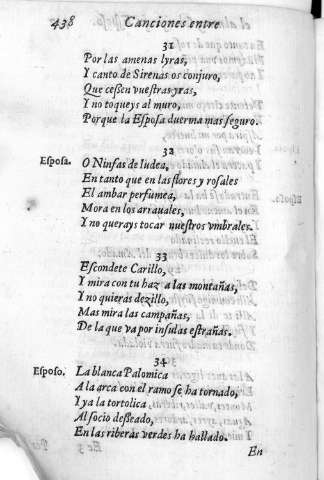 438 Canciones entre
31
Por las amenas lyras,
Y canto de Sirenas os conjuro,
Que cessen vuestras yras,
Y no toqueys al muro,
Porque la Esposa duerma mas seguro.
32
Esposa. O Ninfas de Iudea,
En tanto que en las flores y rosales
El ambar perfumea,
Mora en los arrauales,
Y no querays tocar nuestros vmbrales.
33
Escondete Carillo,
Y mira con tu haz a las montañas,
Y no quieras dezillo,
Mas mira las campañas,
De la que va por insulas estrañas.
34
Esposo. La blanca Palomica
A la arca con el ramo se ha tornado,
Y ya la tortolica
Al socio desseado,
En las riberas verdes ha hallado.
En